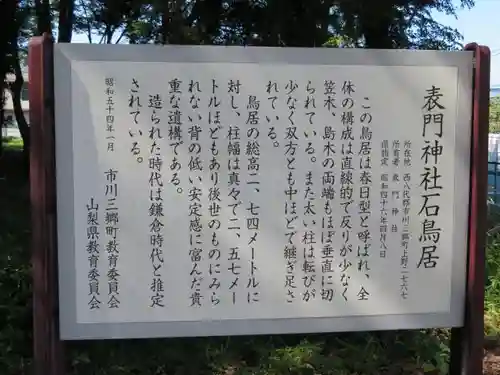 表門神社石鳥居
所在地 西八代郡市川三郷町上野二七六七
所有者 表門神社
県指定 昭和四十六年四月八日
この鳥居は春日型と呼ばれ、全
体の構成は直線的で反りが少なく
笠木、島木の両端もほぼ垂直に切
られている。また太い柱は転びが
少なく双方とも中ほどで継ぎ足さ
れている。
鳥居の総高二、七四メートルに
対し、柱幅は真々で二、五七メー
トルほどもあり後世のものにみら
れない背の低い、安定感に富んだ貴
重な遺構である。
造られた時代は鎌倉時代と推定
されている。
昭和五十四年一月
市川三郷町教育委員会
山梨県教育委員会